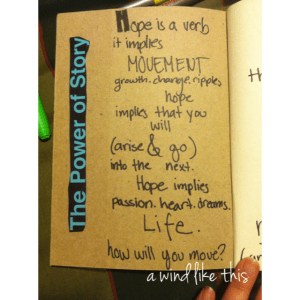 The Power of Story
Hope is a verb
it implies
MOVEMENT
growth. change. ripples
hope
implies that you
will
(arise & go)
into the next.
Hope implies
passion. heart. dreams.
Life.
how will you move?
a wind like this